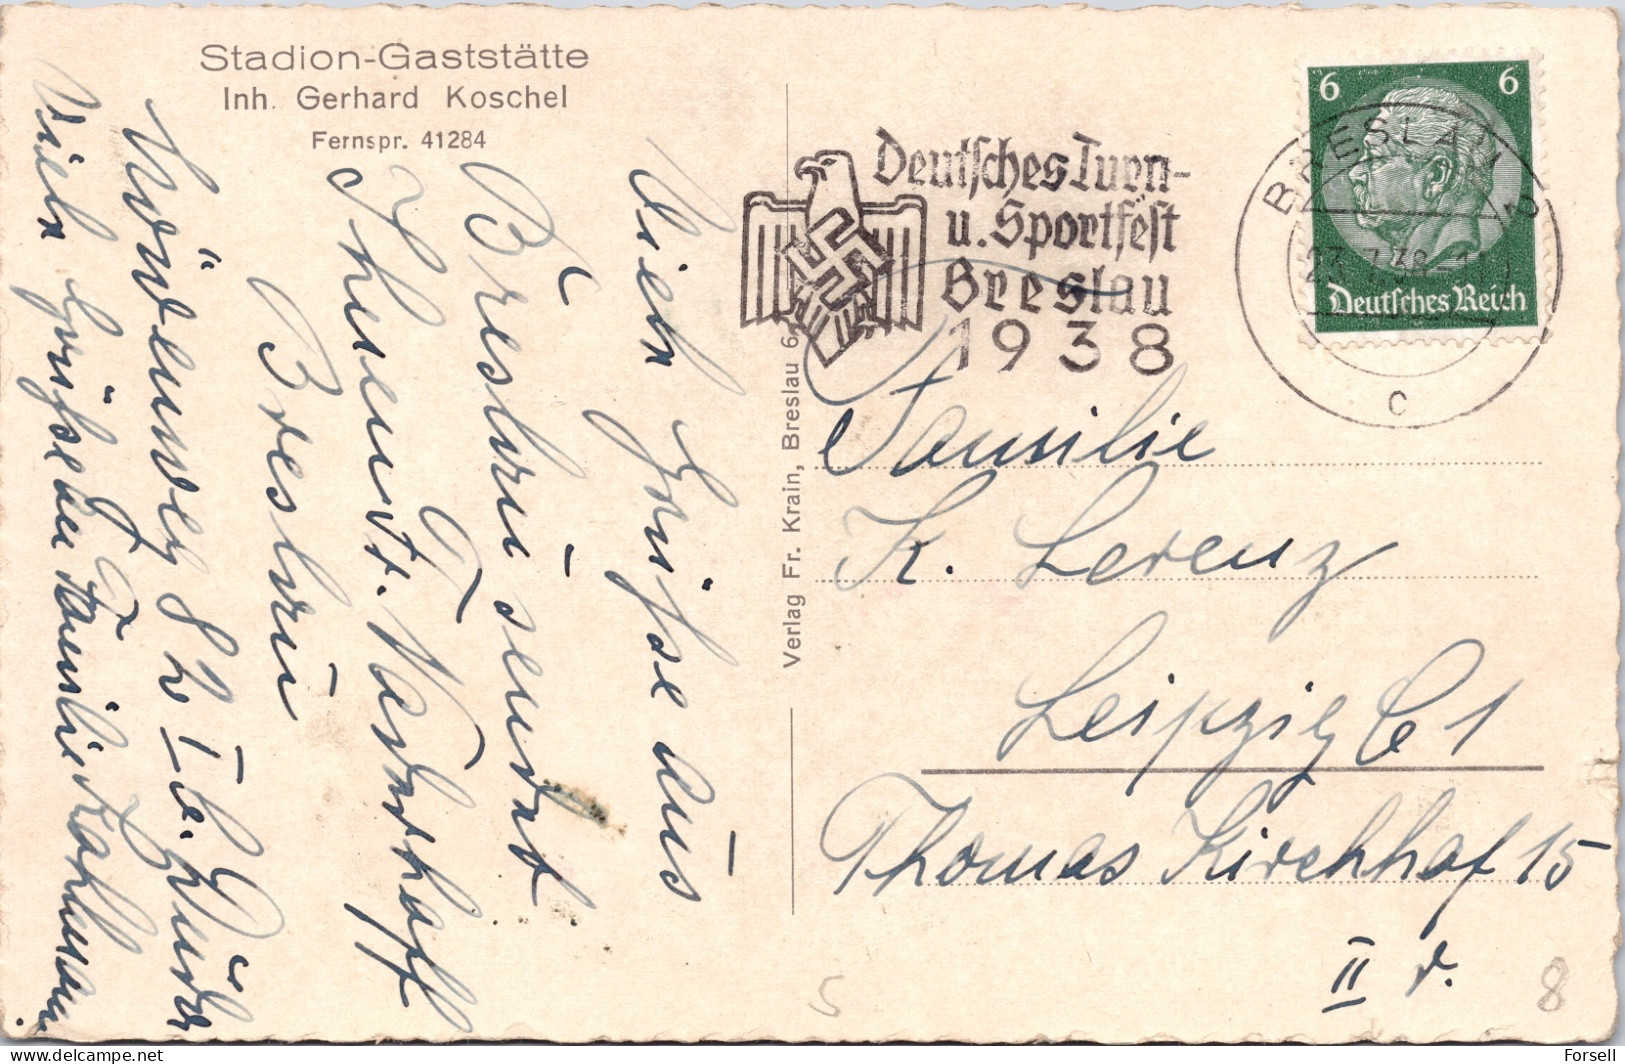 Stadion-Gaststätte
Inh. Gerhard Koschel
Fernspr. 41284
Viele Grüße aus
Breslau sendet
Breslau
Löwenweg 82 I b.
Viele Grüße an Familie
Verlag Fr. Krain, Breslau 6
Deutsches Turn-
u. Sportfest
Breslau
1938
6 6
Deutsches Reich
BRESLAU
23.7.38
c
Familie
K. Lorenz
Leipzig C 1
Thomas Kirchhof 15
II r.
5
8
Forsell